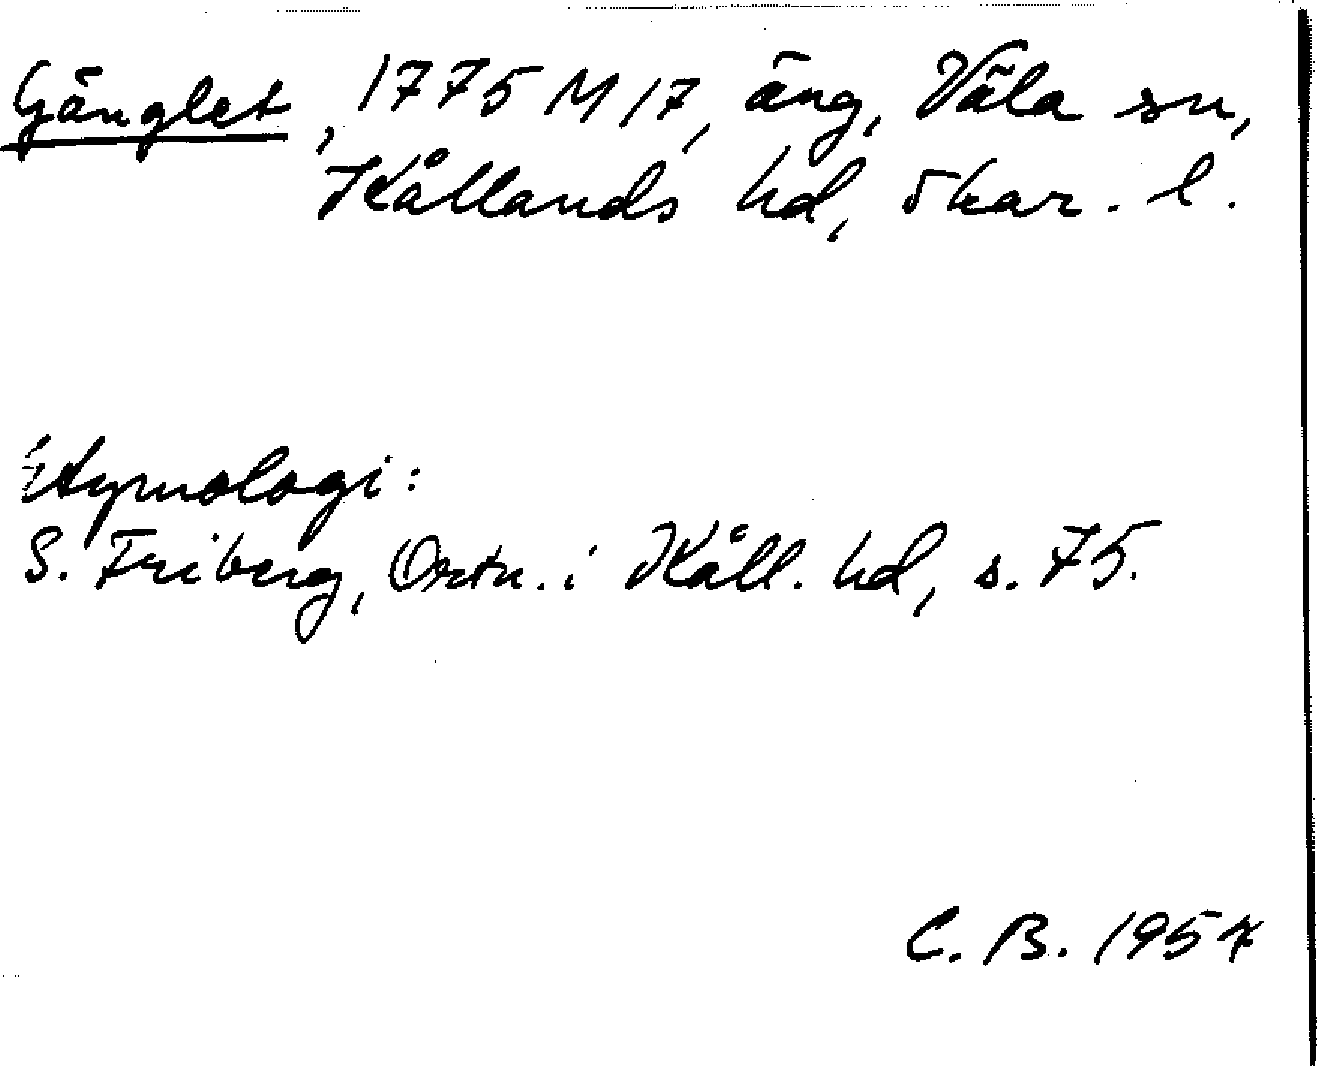 Gänglet, 1775 M 17, äng, Väla sn,
Kållands hd, Skar. l.
Etymologi:
S. Friberg, Ortn. i Kåll. hd, s. 75.
C. B. 1957